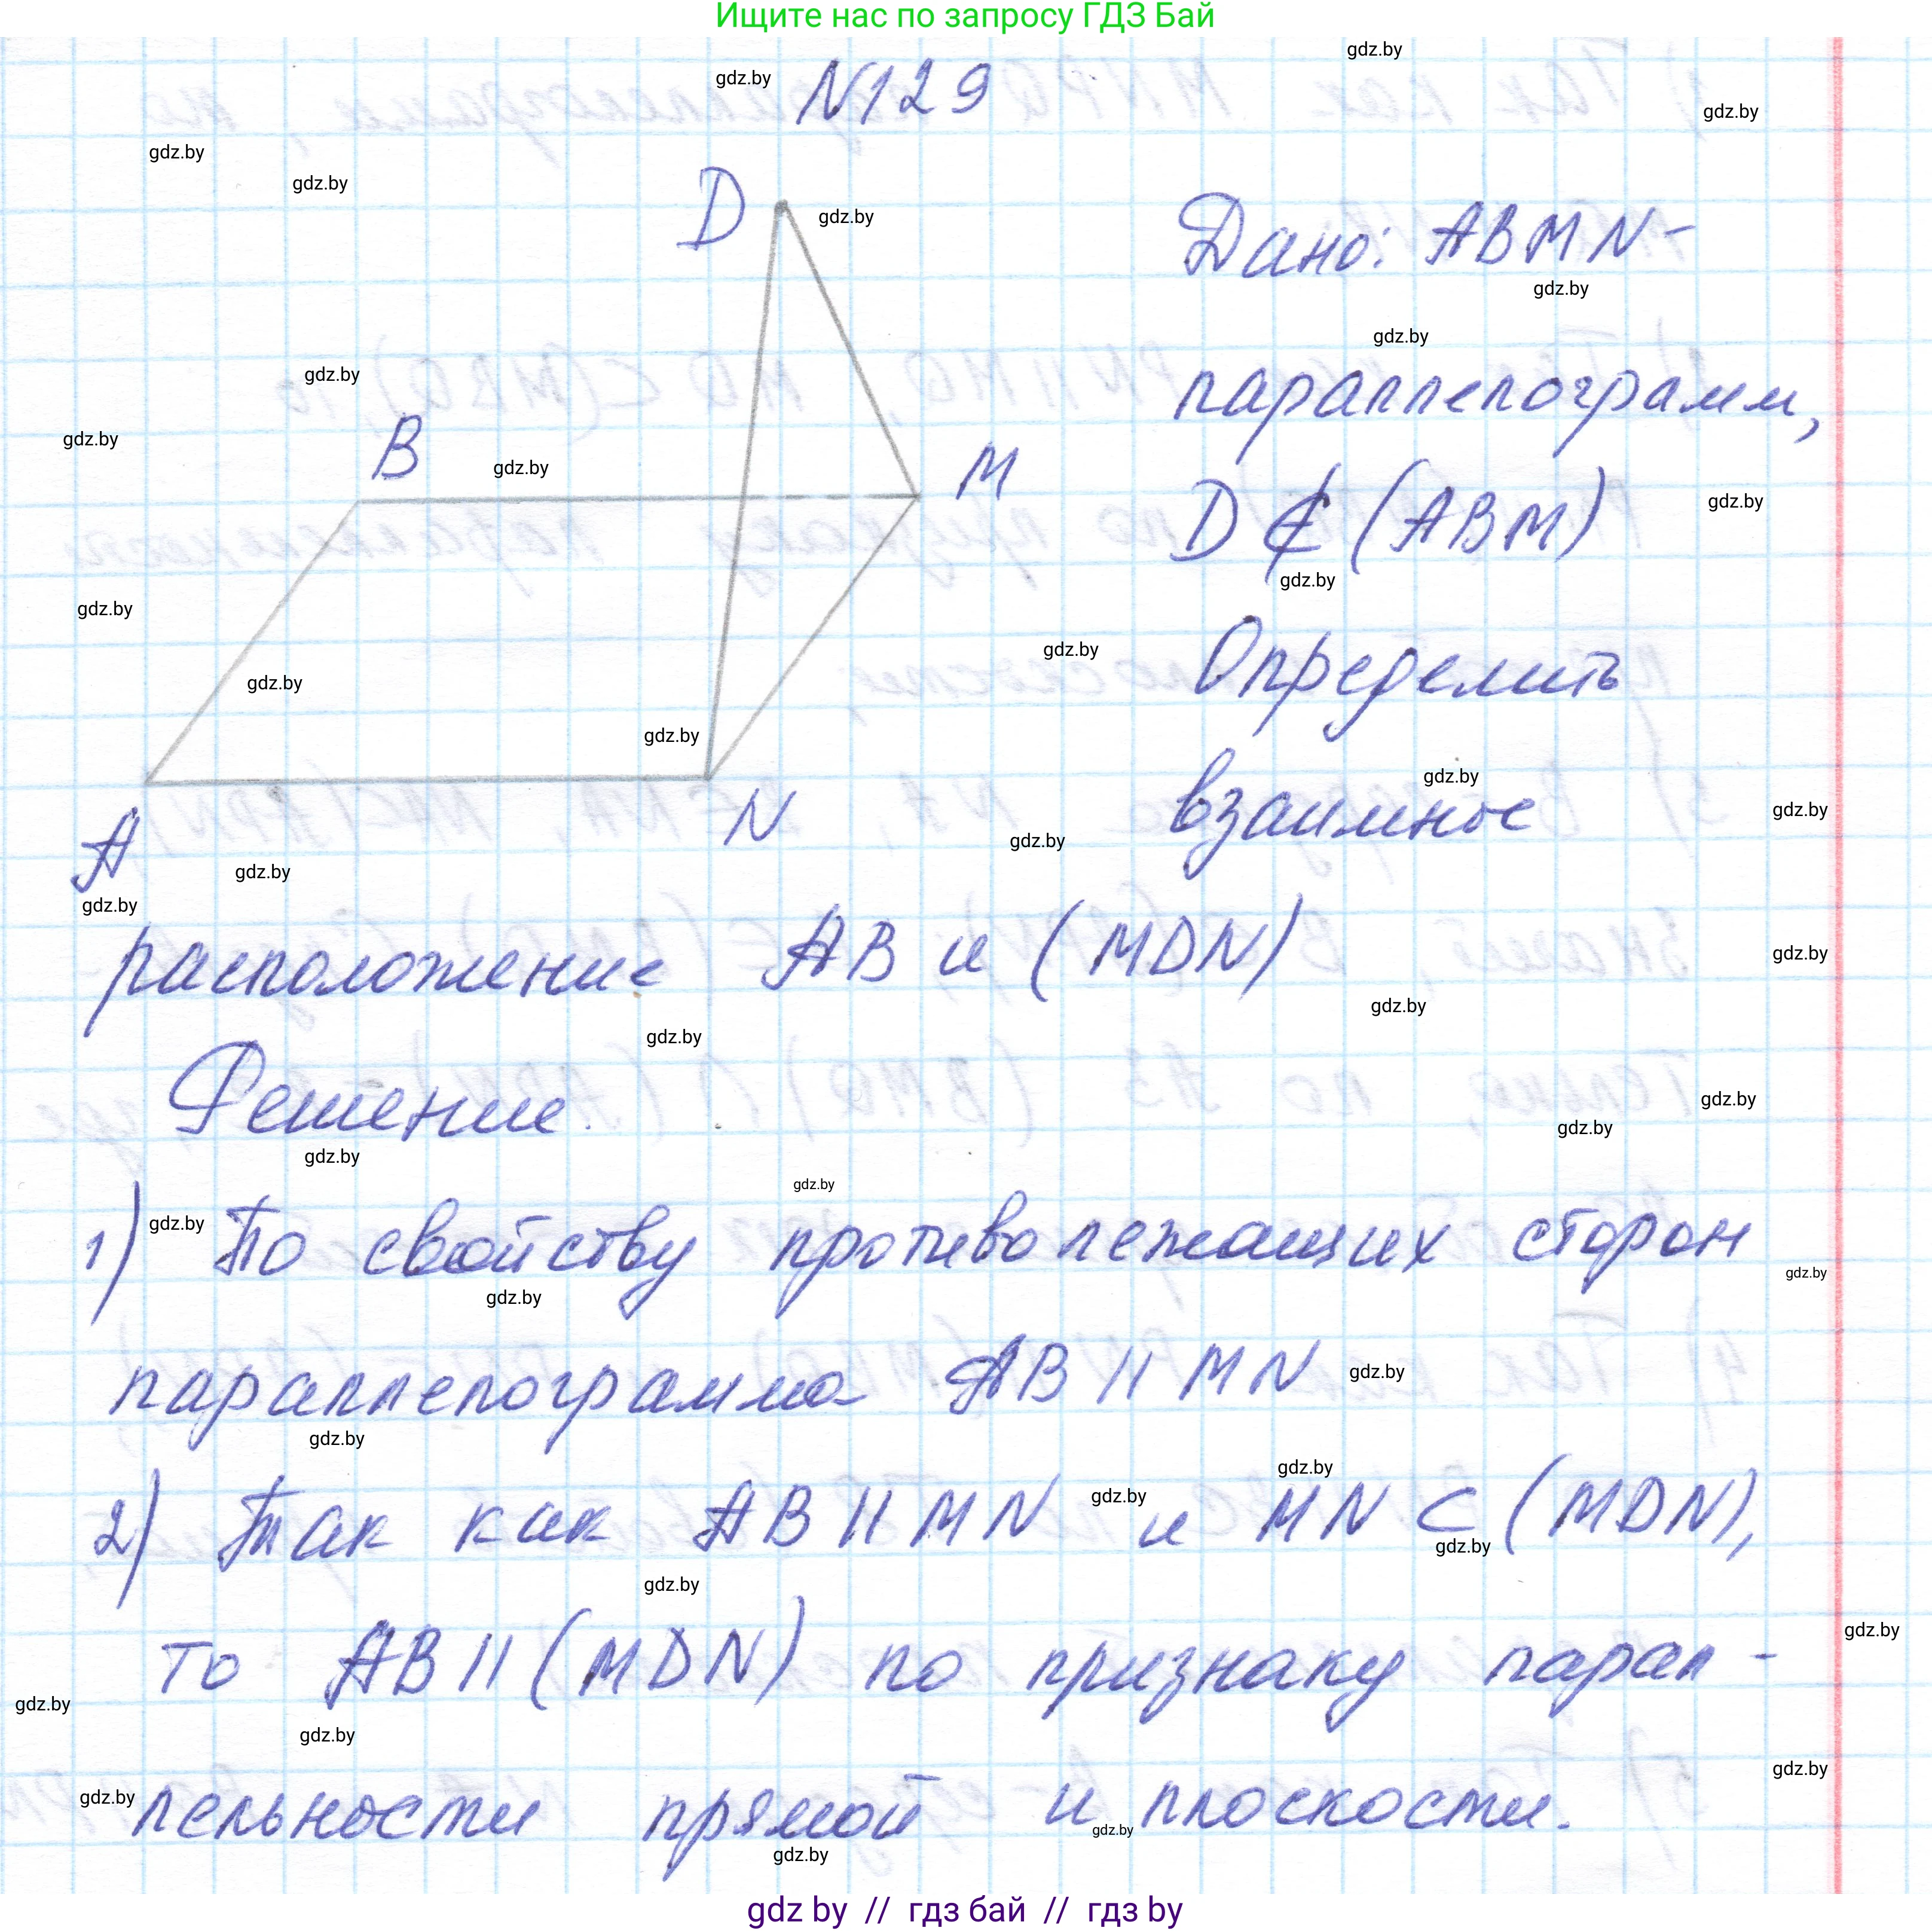 Ищите нас по запросу ГДЗ Бай
gdz.by
gdz.by
N129
gdz.by
gdz.by
gdz.by
D
gdz.by
Дано: ABMN-
gdz.by
gdz.by
gdz.by
параллелограмм,
B
gdz.by
gdz.by
M
D ⊄ (ABM)
gdz.by
gdz.by
gdz.by
gdz.by
Определить
gdz.by
gdz.by
gdz.by
взаимное
gdz.by
A
N
gdz.by
gdz.by
gdz.by
расположение AB и (MDN)
gdz.by
gdz.by
gdz.by
Решение.
gdz.by
gdz.by
gdz.by
gdz.by
1) По свойству противолежащих сторон
gdz.by
gdz.by
gdz.by
параллелограмма AB || MN
gdz.by
gdz.by
gdz.by
gdz.by
2) Так как AB || MN и MN ⊂ (MDN),
gdz.by
gdz.by
то AB || (MDN) по признаку парал-
gdz.by
gdz.by
gdz.by
gdz.by
gdz.by
лельности прямой и плоскости.
gdz.by
gdz.by
gdz by // гдз бай // гдз by